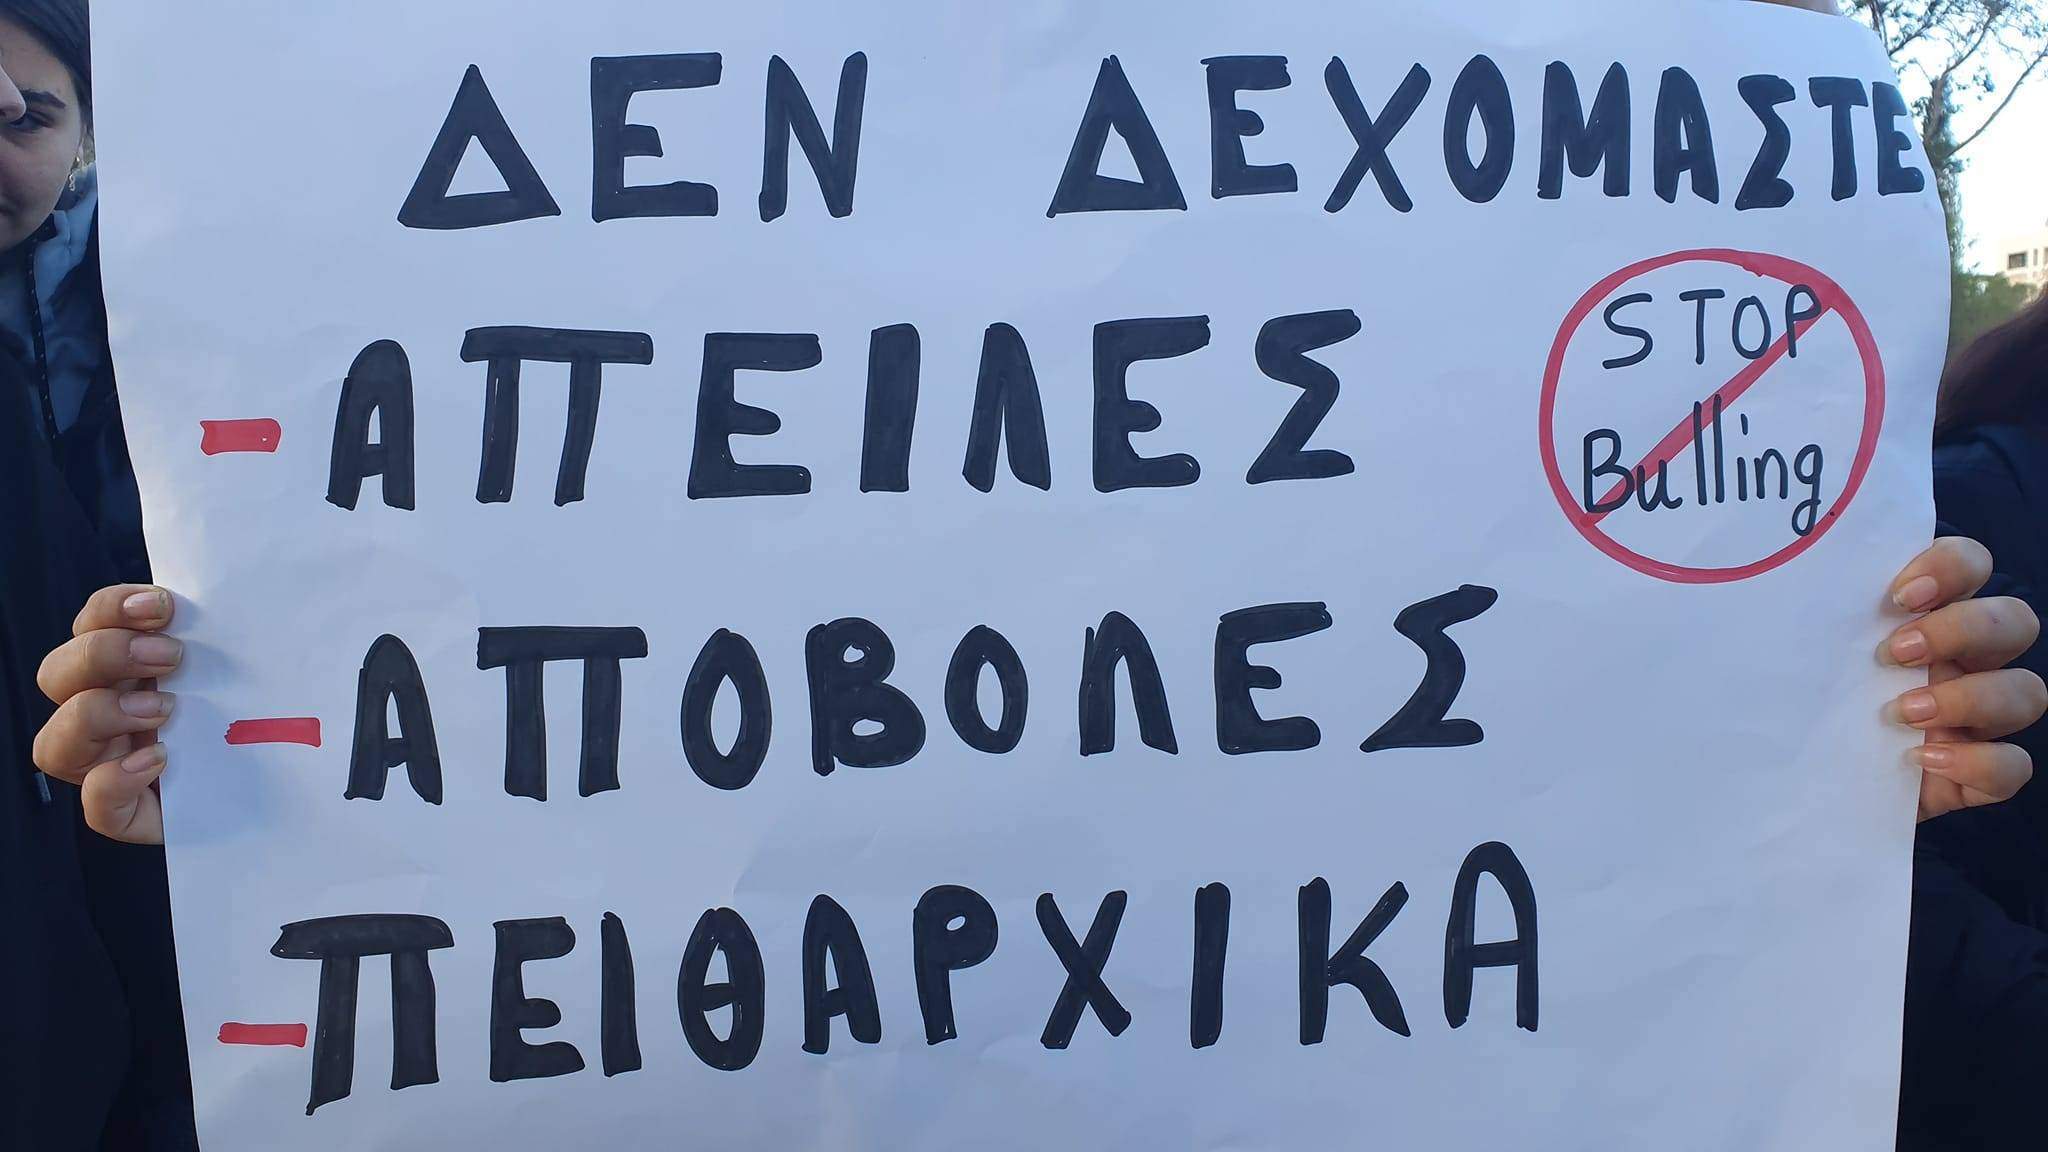 ΔΕΝ ΔΕΧΟΜΑΣΤΕ
-ΑΠΕΙΛΕΣ
STOP
Bulling
-ΑΠΟΒΟΛΕΣ
-ΠΕΙΘΑΡΧΙΚΑ